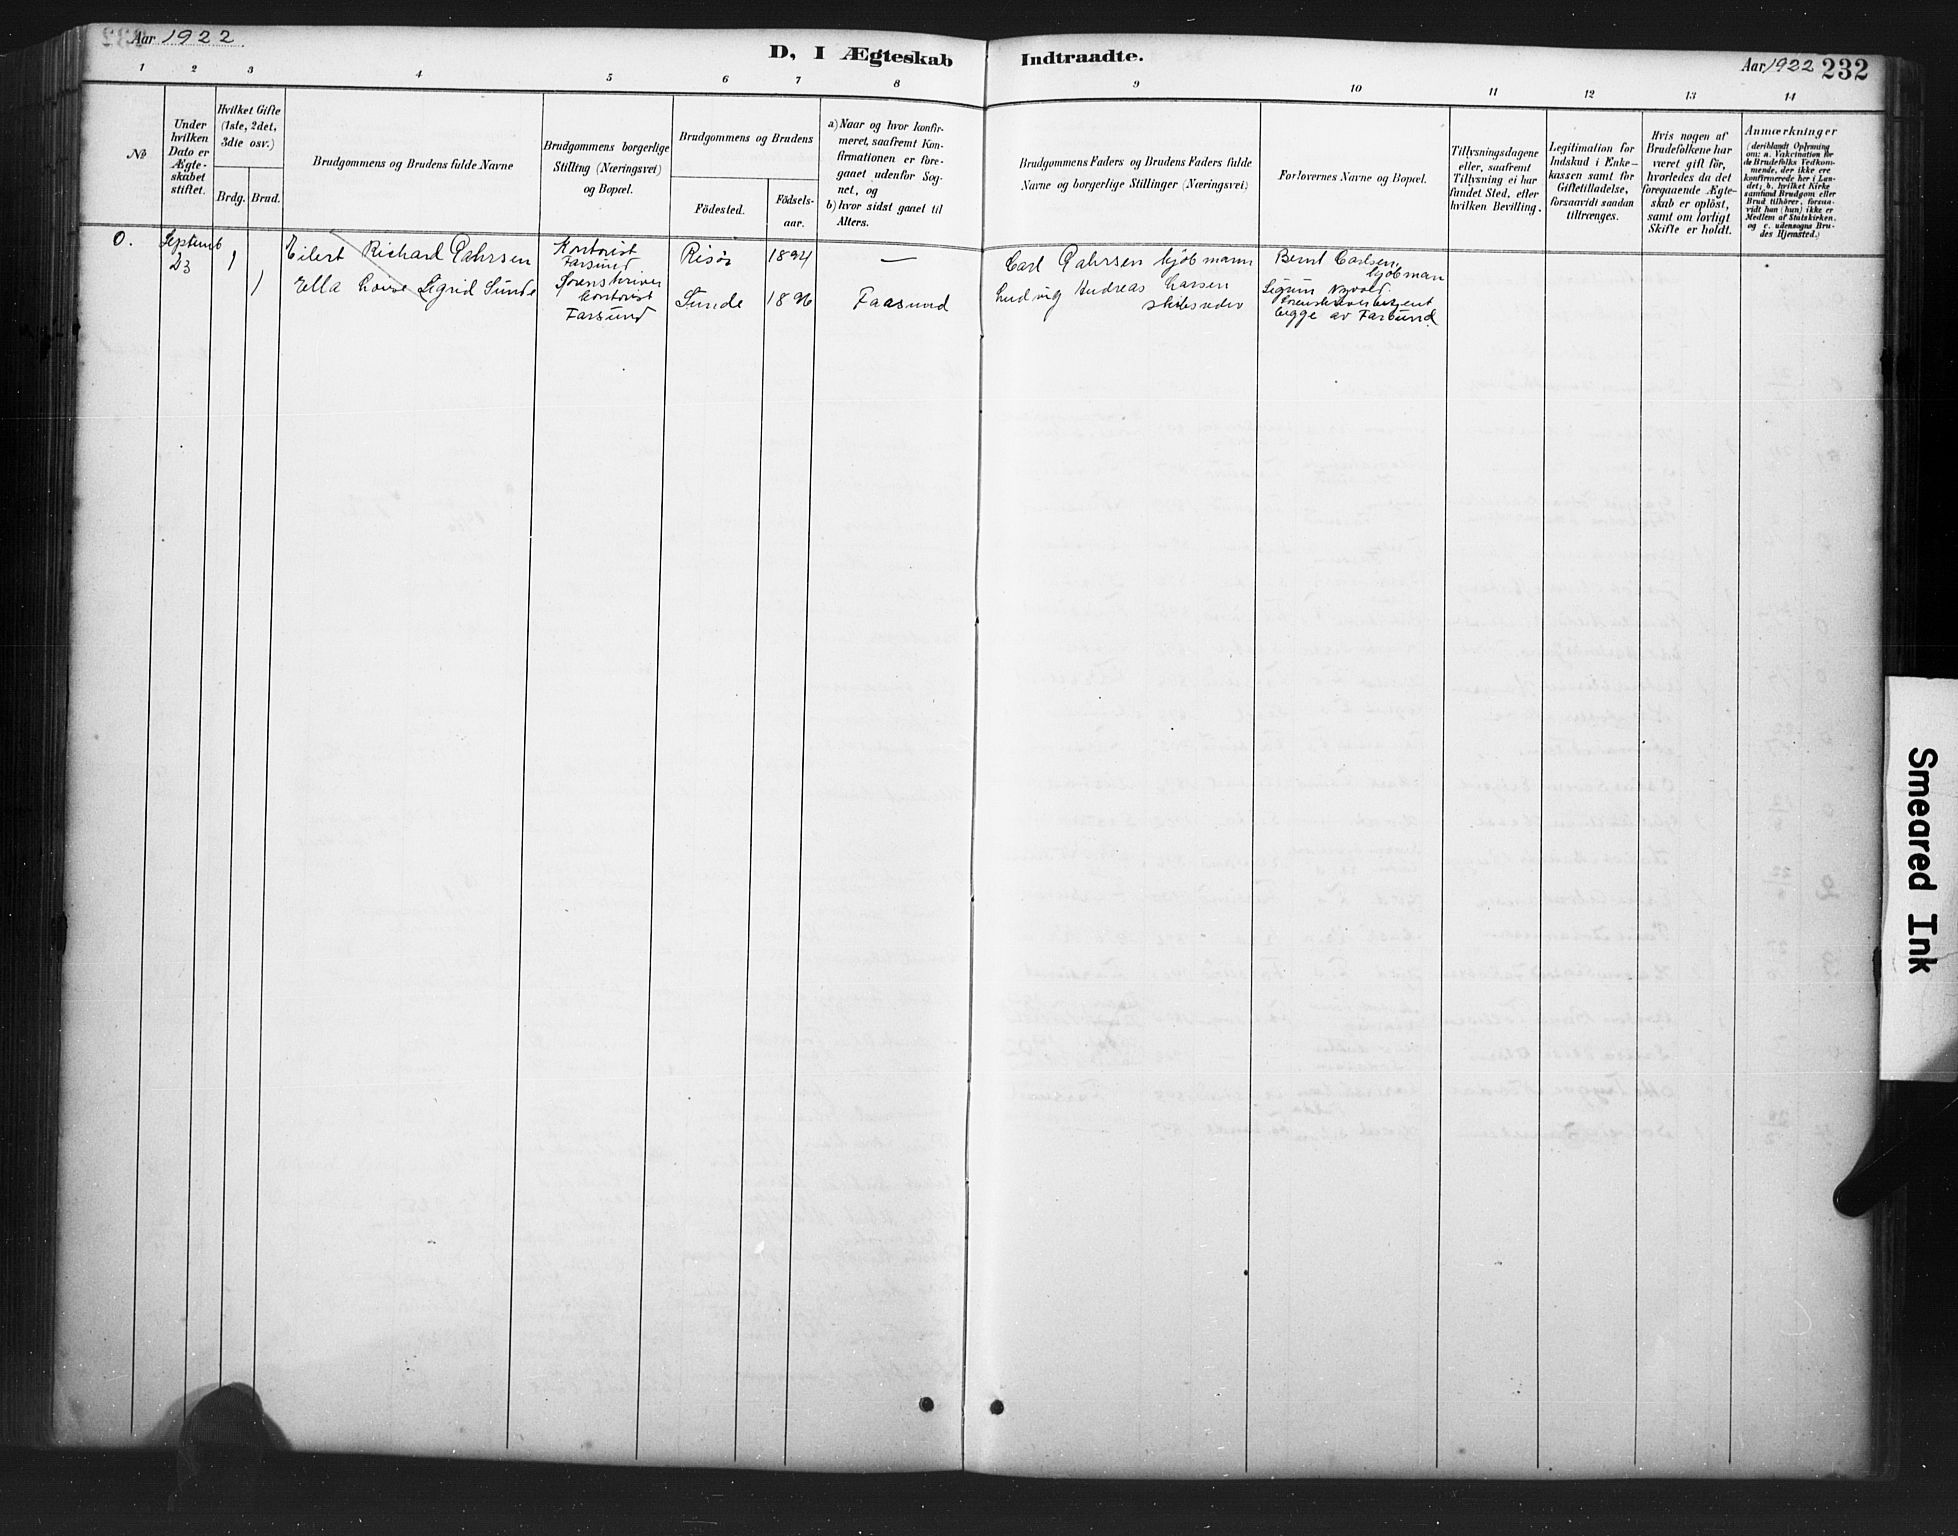 Aar 1922
D, I Ægteskab Indtraadte.
Aar 1922 232
1 2 3 4 5 6 7 8 9 10 11 12 13 14
No
Under
hvilken
Dato er
Ægte-
skabet
stiftet.
Hvilket Gifte
(1ste, 2det,
3die osv.)
Brdg. Brud.
Brudgommens og Brudens fulde Navne
Brudgommens borgerlige
Stilling (Næringsvei)
og Bopæl.
Brudgommens og Brudens
Födested.
Födsels-
aar.
a) Naar og hvor konfir-
meret, saafremt Kon-
firmationen er fore-
gaaet udenfor Sog-
net, og
b) hvor sidst gaaet til
Alters.
Brudgommens Faders og Brudens Faders fulde
Navne og borgerlige Stillinger (Næringsvei)
Forlovernes Navne og Bopæl.
Tillysningsdagene
eller, saafremt
Tillysning ei har
fundet Sted, efter
hvilken Bevilling.
Legitimation for
Indskud i Enke-
kassen samt for
Giftetilladelse,
forsaavidt saadan
tiltrænges.
Hvis nogen af
Brudefolkene har
været gift för,
hvorledes da det
foregaaende Ægte-
skab er oplöst,
samt om lovligt
Skifte er holdt.
Anmærkninger
(deriblandt Oplysning
om: a. Vakcination for
de Brudefolks Vedkom-
mende, der ikke ere
konfirmerede her i Lan-
det; b. hvilket Kirke
samfund Brudgom eller
Brud tilhörer, forsaa-
vidt han (hun) ikke er
Medlem af Statskirken.
og c. udensogns Bru-
des Hjemsted.)
0.
Septemb
23
1
Eilert Richard Dahrsen
Kontorist
Farsund
Risør
1894
—
Carl Dahrsen kjøbmann
Bernt Carlsen,
kjøbman
1
Ella Louise Sigrid Sunde
Sorenskriver
kontorist
Farsund
Sunde
1896
Faasund
Ludvig Andreas Larsen
skibsreder
Sigrun
begge av Farsund.
Smeared Ink